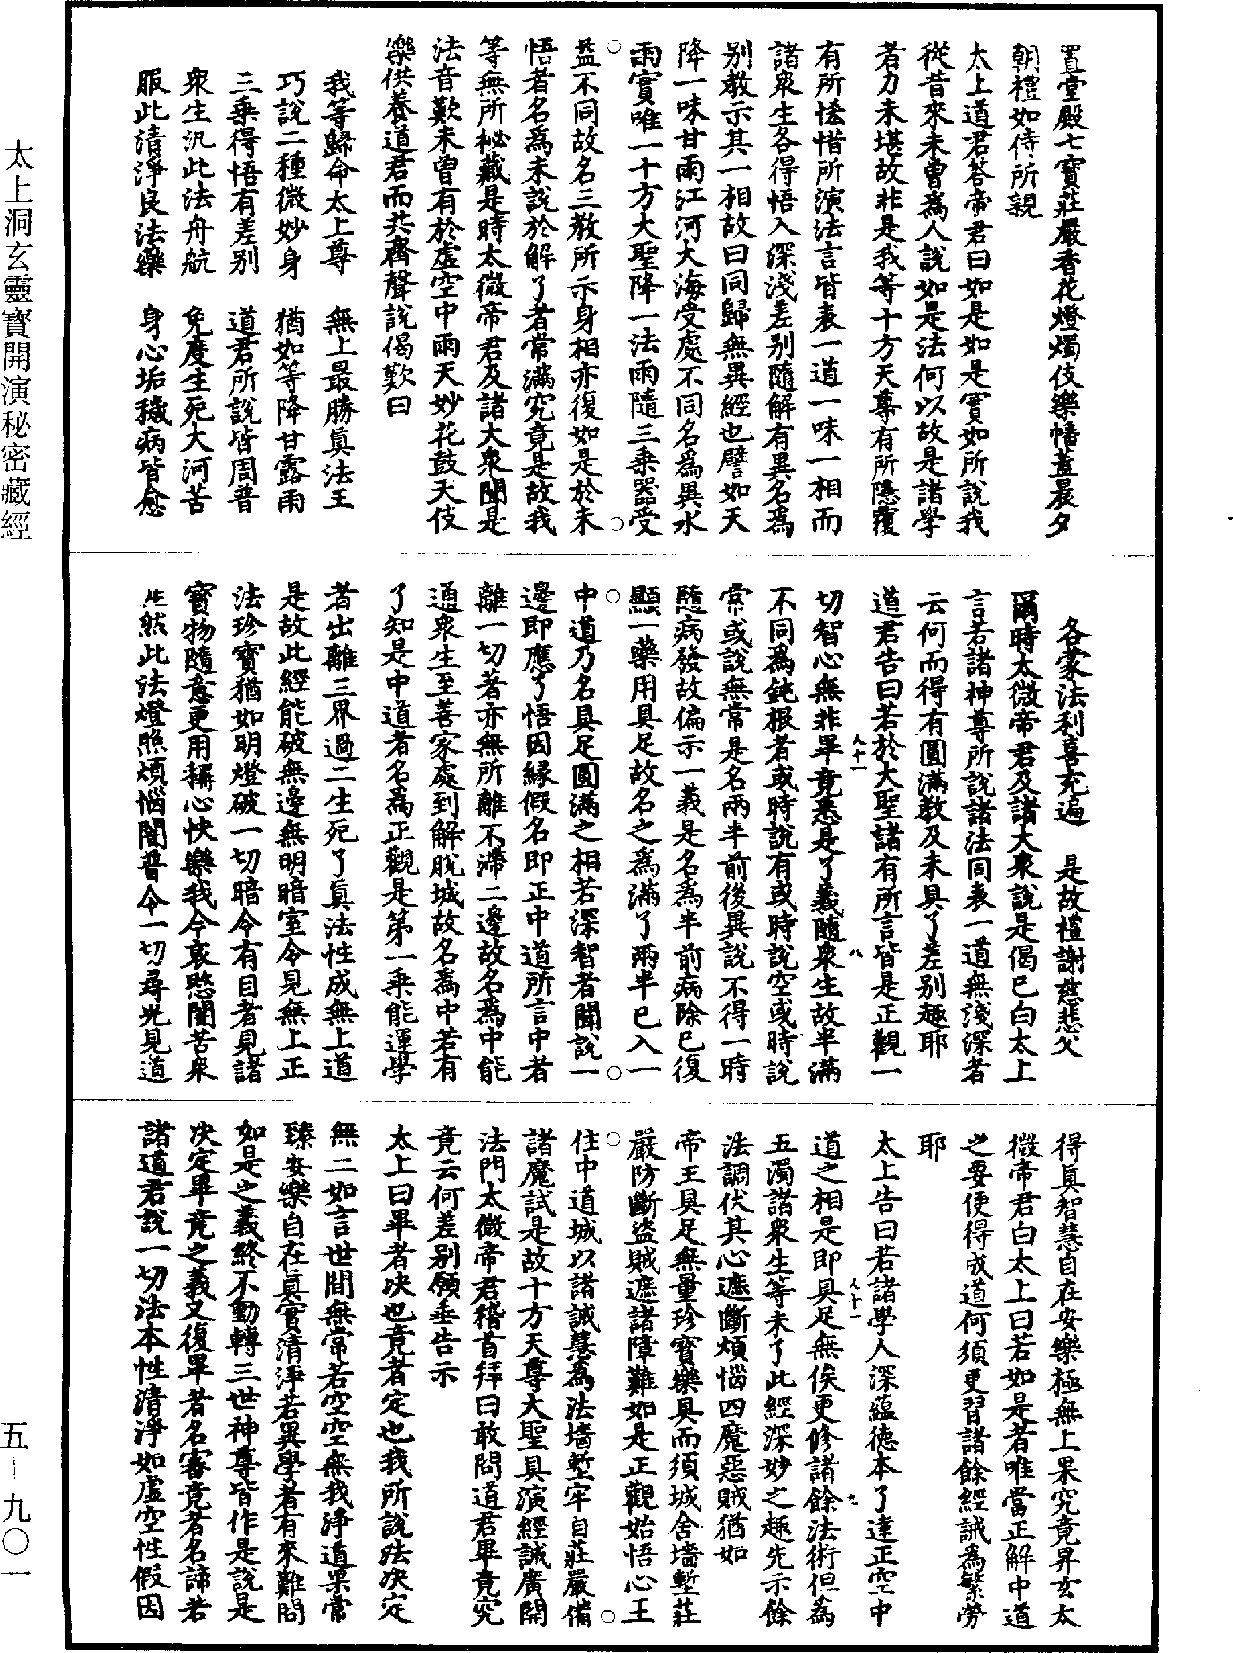 置堂殿七寶莊嚴香花燈燭伎樂幡蓋晨夕
朝禮如侍所親
太上道君荅帝君曰如是如是實如所說我
從昔來未曾為人說如是法何以故是諸學
若力未堪故非是我等十方天尊有所隱覆
有所悋惜所演法言皆表一道一味一相而
諸衆生各得悟入深淺差別隨解有異名為
別教示其一相故曰同歸無異經也譬如天
降一味甘雨江河大海受處不同名為異水
雨實唯一十方大聖降一法雨隨三乘器受
益不同故名三教所示身相亦復如是於未
悟者名為未說於解了者常滿究竟是故我
等無所祕藏是時太微帝君及諸大衆聞是
法音歎未曾有於虛空中雨天妙花鼓天伎
樂供養道君而共齊聲說偈歎曰
我等歸命太上尊　無上最勝真法王
巧說二種微妙身　猶如等降甘露雨
三乘得悟有差別　道君所說皆周普
衆生汎此法舟航　免度生死大河苦
服此清淨良法藥　身心垢穢病皆愈
各蒙法利喜充遍　是故稽謝慈悲父
爾時太微帝君及諸大衆說是偈已白太上
言若諸神尊所說諸法同表一道無淺深者
云何而得有圓滿教及未具了差別趣耶
道君告曰若於大聖諸有所言皆是正觀一
切智心無非畢竟悉是了義隨衆生故半滿
不同為鈍根者或時說有或時說空或時說
常或說無常是名兩半前後異說不得一時
隨病發故偏示一義是名為半前病除已復
顯一藥用具足故名之為滿了兩半已入一
中道乃名具足圓滿之相若深智者聞說一
邊即應了悟因緣假名即正中道所言中者
離一切著亦無所離不滯二邊故名為中能
通衆生至善家處到解脫城故名為中若有
了知是中道者名為正觀是第一乘能運學
者出離三界過二生死了真法性成無上道
是故此經能破無邊無明暗室令見無上正
法珍寶猶如明燈破一切暗令有目者見諸
寶物隨意更用稱心快樂我今哀愍闇苦衆
生然此法燈照煩惱闇普令一切尋光見道
得真智慧自在安樂極無上果究竟昇玄太
微帝君白太上曰若如是者唯當正解中道
之要便得成道何須更習諸餘經誡為繁勞
耶
太上告曰若諸學人深蘊德本了達正空中
道之相是即具足無俟更修諸餘法術但為
五濁諸衆生等未了此經深妙之趣先示餘
法調伏其心遮斷煩惱四魔惡賊猶如
帝王具足無量珍寶樂具而須城舍墻塹莊
嚴防斷盜賊遮諸障難如是正觀始悟心王
住中道城以諸誡慧為法墻塹牢自莊嚴備
諸魔試是故十方天尊大聖具演經誡廣開
法門太微帝君稽首拜曰敢問道君畢竟究
竟云何差別願垂告示
太上曰畢者決也竟者定也我所說法決定
無二如言世間無常若空空無我淨道果常
臻安樂自在真實清淨若異學者有來難問
如是之義終不動轉三世神尊皆作是說是
決定畢竟之義又復畢者名審竟者名諦若
諸道君說一切法本性清淨如虛空性假因
八十一
八
八十一
九
太上洞玄靈寶開演秘密藏經
五—九〇一